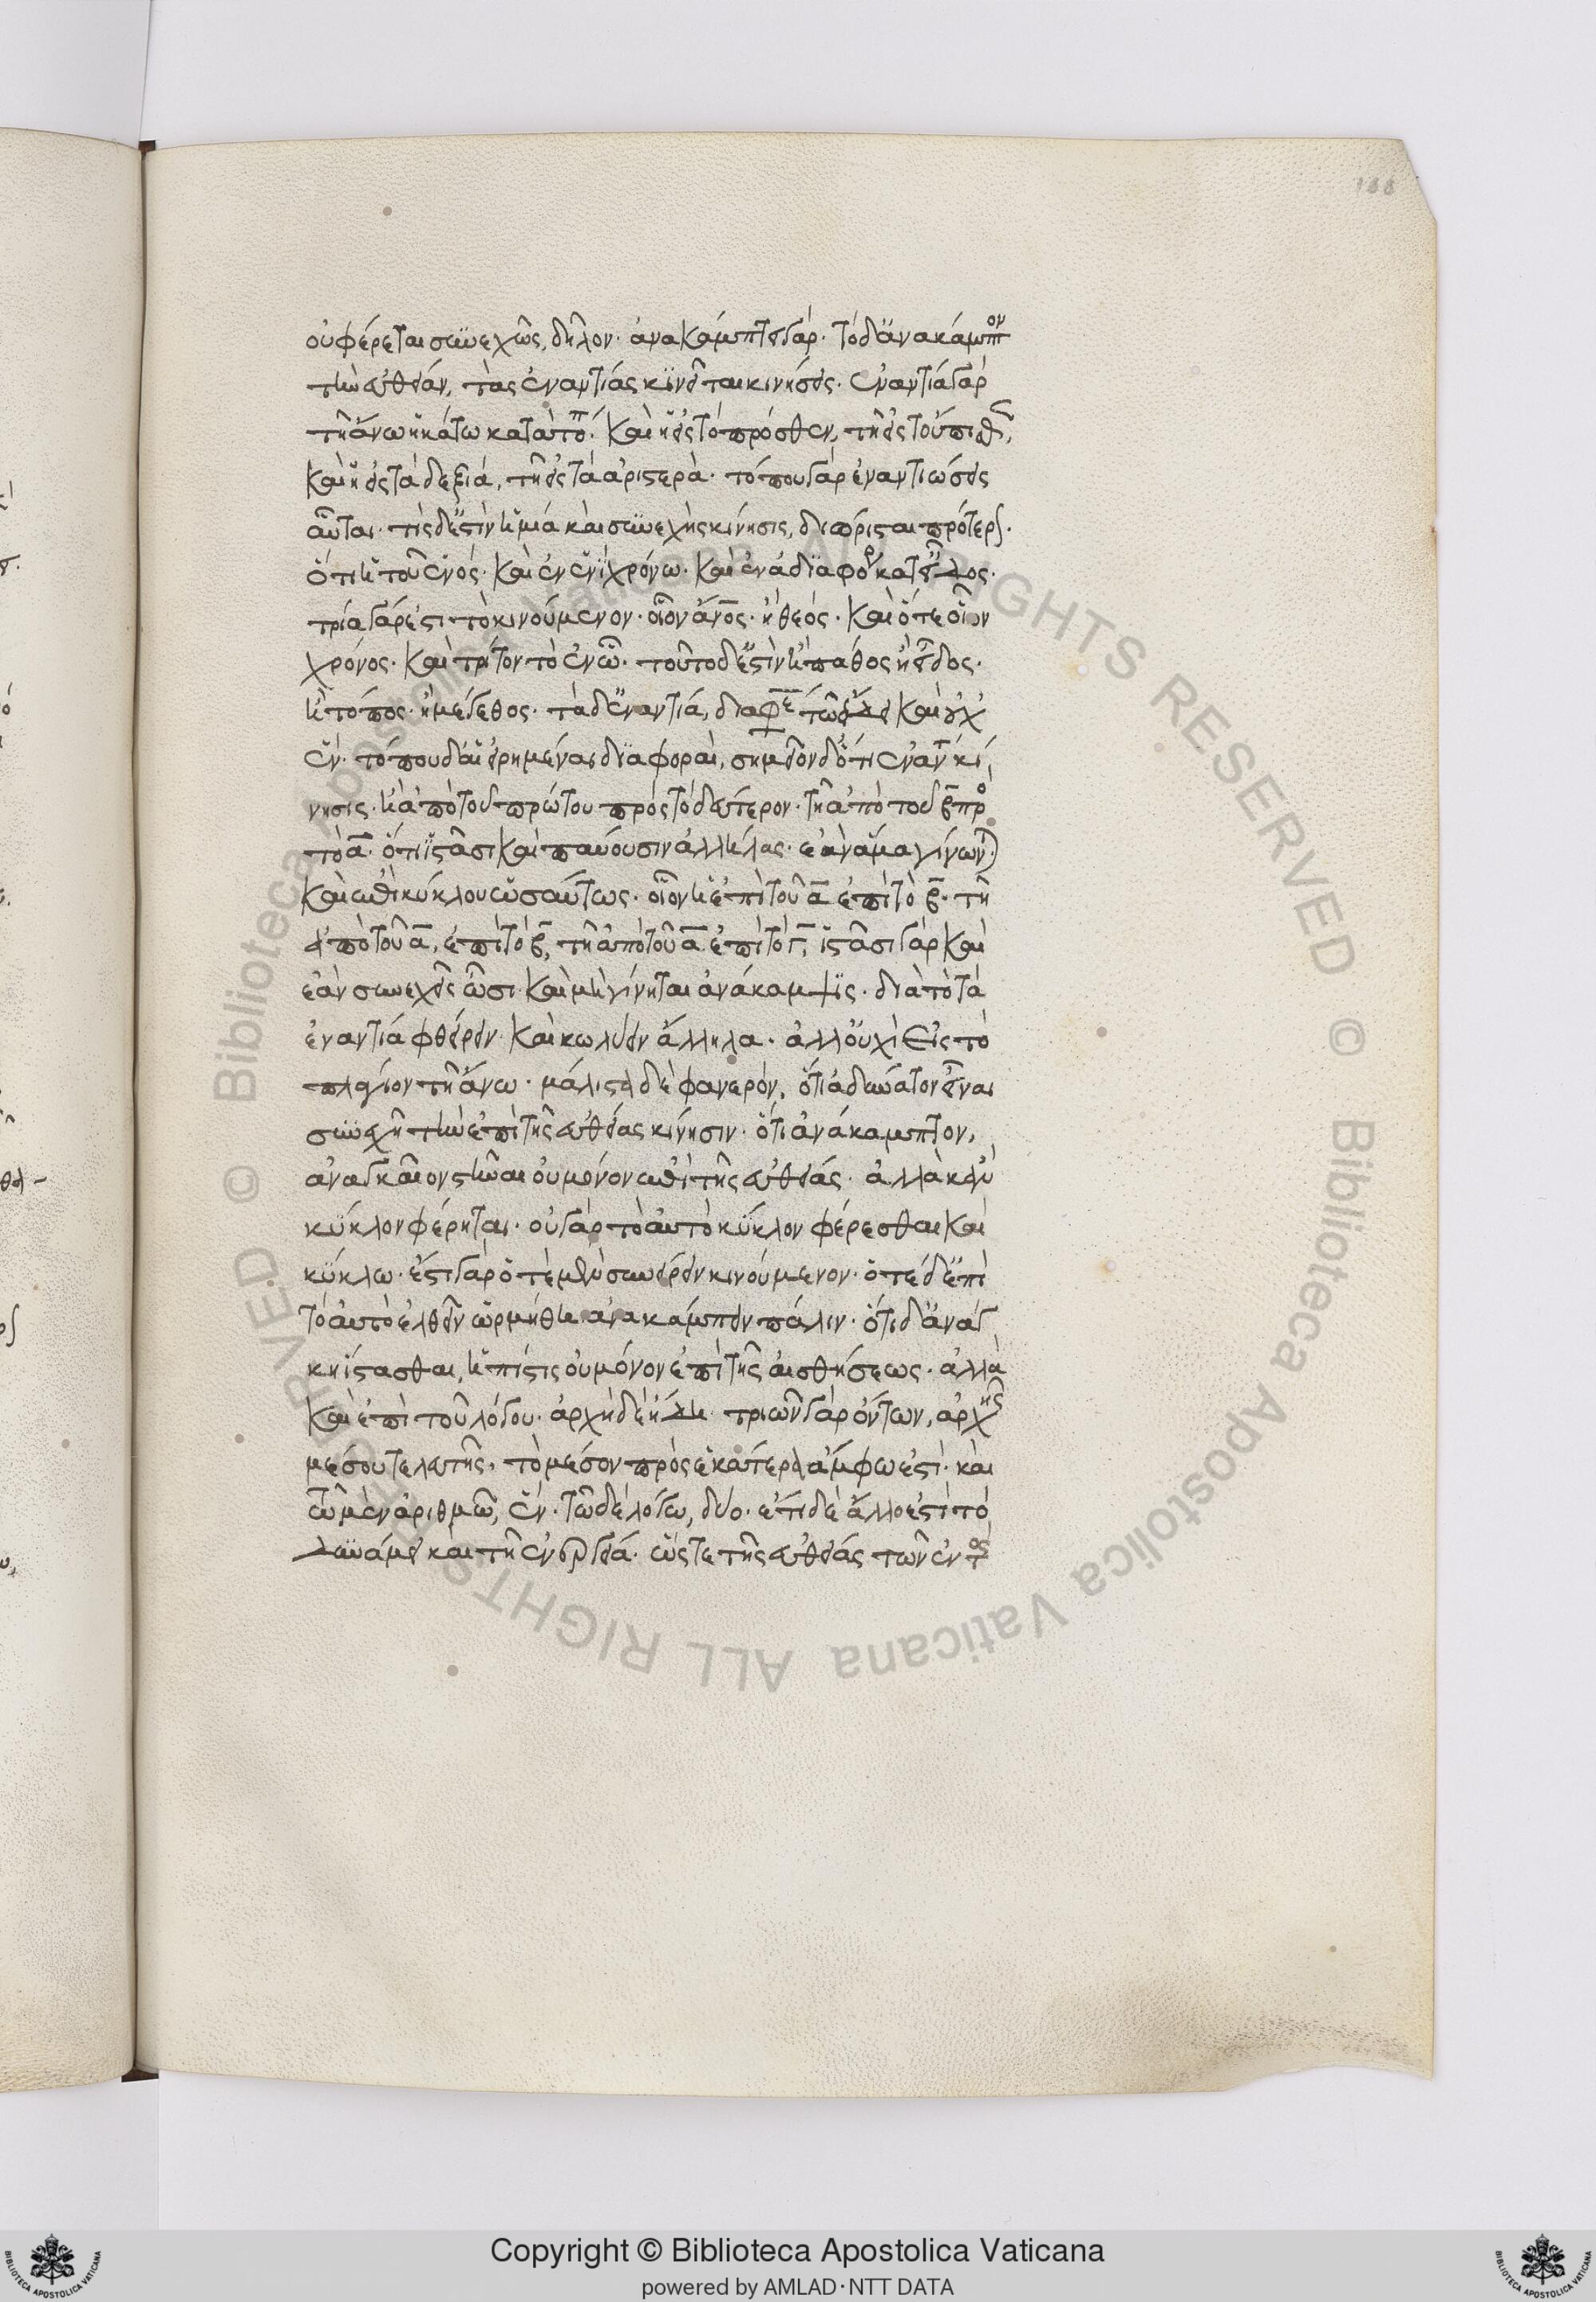 188
οὐ φέρεται συνεχῶς, δῆλον· ἀνακάμπτει γάρ· τὸ δ' ἀνακάμπτον
τὴν εὐθεῖαν, τὰς ἐναντίας κινεῖται κινήσεις· ἐναντία γὰρ
τῆ ἄνω ἡ κάτω κατὰ τόπ· καὶ ἡ εἰς τὸ πρόσθεν, τῆ εἰς τοὔπισθεν,
καὶ ἡ εἰς τὰ δεξιά, τῆ εἰς τὰ ἀριστερά· τόπου γὰρ ἐναντιώσεις
αὗται· τίς δ' ἐστὶν ἡ μία καὶ συνεχὴς κίνησις, διώρισται πρότερον·
ὅτι ἡ τοῦ ἑνός· καὶ ἐν ἑνὶ χρόνω· καὶ ἐν ἀδιαφόρω κατ' εἶδος·
τρία γάρ ἐστι τὸ κινούμενον· οἷον ἄνος· ἢ θεός· καὶ ὅτε οἷον
χρόνος· καὶ τρίτον τὸ ἐν ὧ· τοῦτο δ' ἐστὶν ἢ πάθος ἢ εἶδος·
ἢ τόπος· ἢ μέγεθος· τὰ δ' ἐναντία, διαφέρει τῶ εἴδει καὶ οὐχ
ἕν· τόπου δ' αἱ εἰρημέναι διαφοραί, σημεῖον δ' ὅτι ἐναντ κί
νησις· ἡ ἀπὸ τοῦ πρώτου πρὸς τὸ δεύτερον· τῆ ἀπὸ τοῦ β πρὸ
τὸ α· ὅτι ἱστᾶσι καὶ παύουσιν ἀλλήλας· ἐὰν ἅμα γίνωνται·
καὶ ἐπὶ κύκλου ὡσαύτως· οἷον ἡ ἐπὶ τοῦ α ἐπὶ τὸ β· τῆ
ἀπὸ τοῦ α, ἐπὶ τὸ β, τῆ ἀπὸ τοῦ α ἐπὶ τὸ γ, ἱστᾶσι γὰρ καὶ
ἐὰν συνεχεῖς ὦσι καὶ μὴ γίνηται ἀνάκαμψις· διὰ τὸ τὰ
ἐναντία φθείρειν καὶ κωλύειν ἄλληλα· ἀλλ' οὐχὶ εἰς τὸ
πλάγιον τῆ ἄνω· μάλιστα δὲ φανερόν, ὅτι ἀδύνατον εἶναι
συνεχῆ τὴν ἐπὶ τῆς εὐθείας κίνησιν· ὅτι ἀνάκαμπτον,
ἀναγκαῖον στῆναι οὐ μόνον ἐπὶ τῆς εὐθείας· ἀλλὰ κἂν
κύκλον φέρηται· οὐ γὰρ τὸ αὐτὸ κύκλον φέρεσθαι καὶ
κύκλω· ἔστι γὰρ ὁτὲ μὲν συνείρειν κινούμενον· ὁτὲ δ' ἐπὶ
τὸ αὐτὸ ἐλθεῖν ὡρμήθη ἀνακάμπτειν πάλιν· ὅτι δ' ἀνάγ
κη ἵστασθαι, ἡ πίστις οὐ μόνον ἐπὶ τῆς αἰσθήσεως· ἀλλὰ
καὶ ἐπὶ τοῦ λόγου· ἀρχὴ δὲ ἥδε· τριῶν γὰρ ὄντων, ἀρχῆς
μέσου τελευτῆς, τὸ μέσον πρὸς ἑκάτερα ἄμφω ἐστί· καὶ
τῶ μὲν ἀριθμῶ, ἕν· τῶ δὲ λόγω, δύο· ἔτι δὲ ἄλλο ἐστὶ τὸ
δυνάμει καὶ τῆ ἐνεργεία· ὥστε τῆς εὐθείας τῶν ἐντός
Copyright © Biblioteca Apostolica Vaticana
powered by AMLAD·NTT DATA